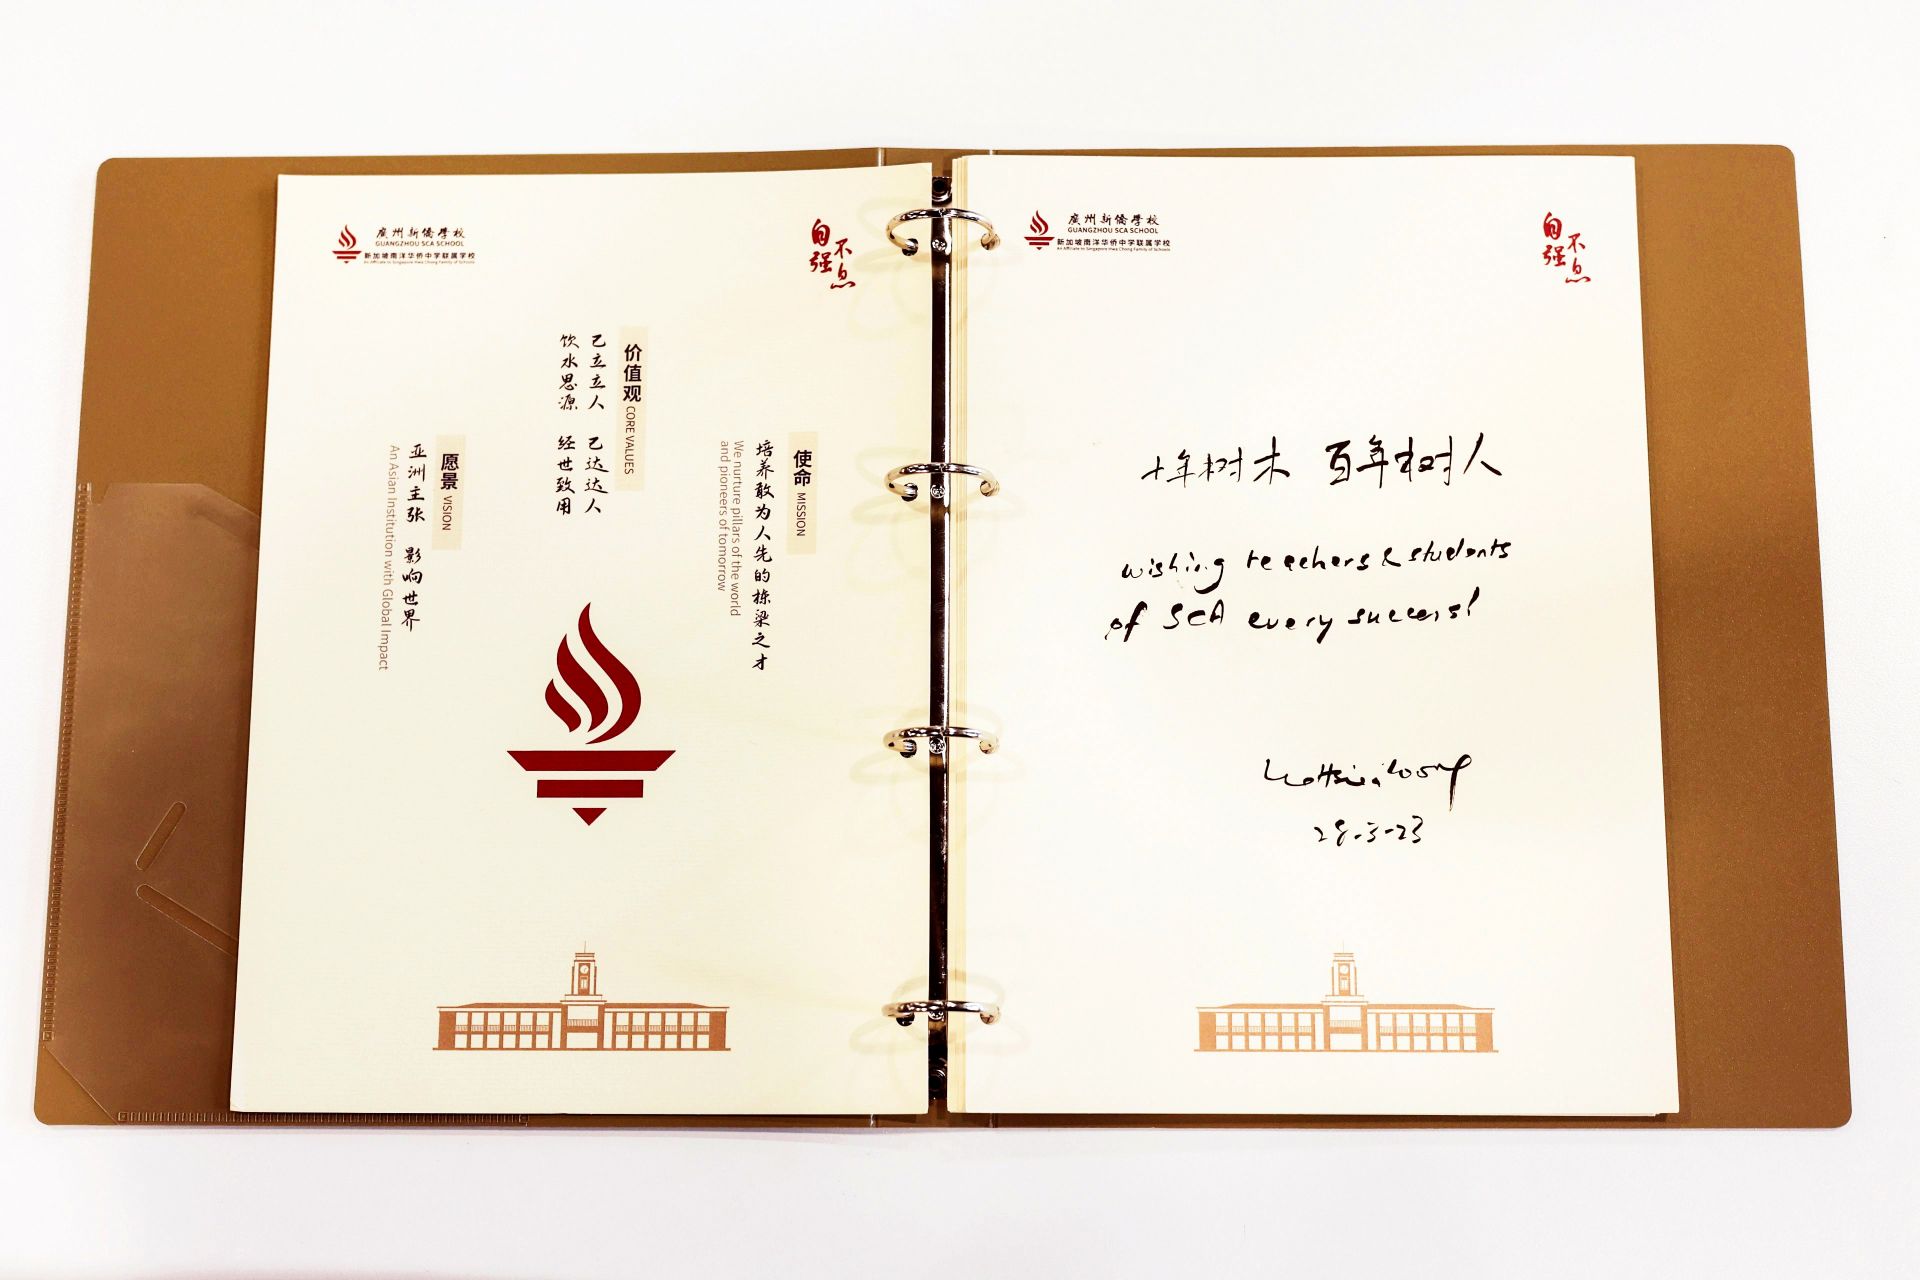 廣州新僑學校
GUANGZHOU SCA SCHOOL
新加坡南洋华侨中学联属学校
An Affiliate to Singapore Hwa Chong Family of Schools
自强
不息
使命 MISSION
培养敢为人先的栋梁之才
We nurture pillars of the world
and pioneers of tomorrow
价值观 CORE VALUES
己立立人 己达达人
饮水思源 经世致用
愿景 VISION
亚洲主张 影响世界
An Asian Institution with Global Impact
廣州新僑學校
GUANGZHOU SCA SCHOOL
新加坡南洋华侨中学联属学校
An Affiliate to Singapore Hwa Chong Family of Schools
自强
不息
十年树木 百年树人
wishing teachers & students
of SCA every success!
Lee Hsien Loong
28-3-23